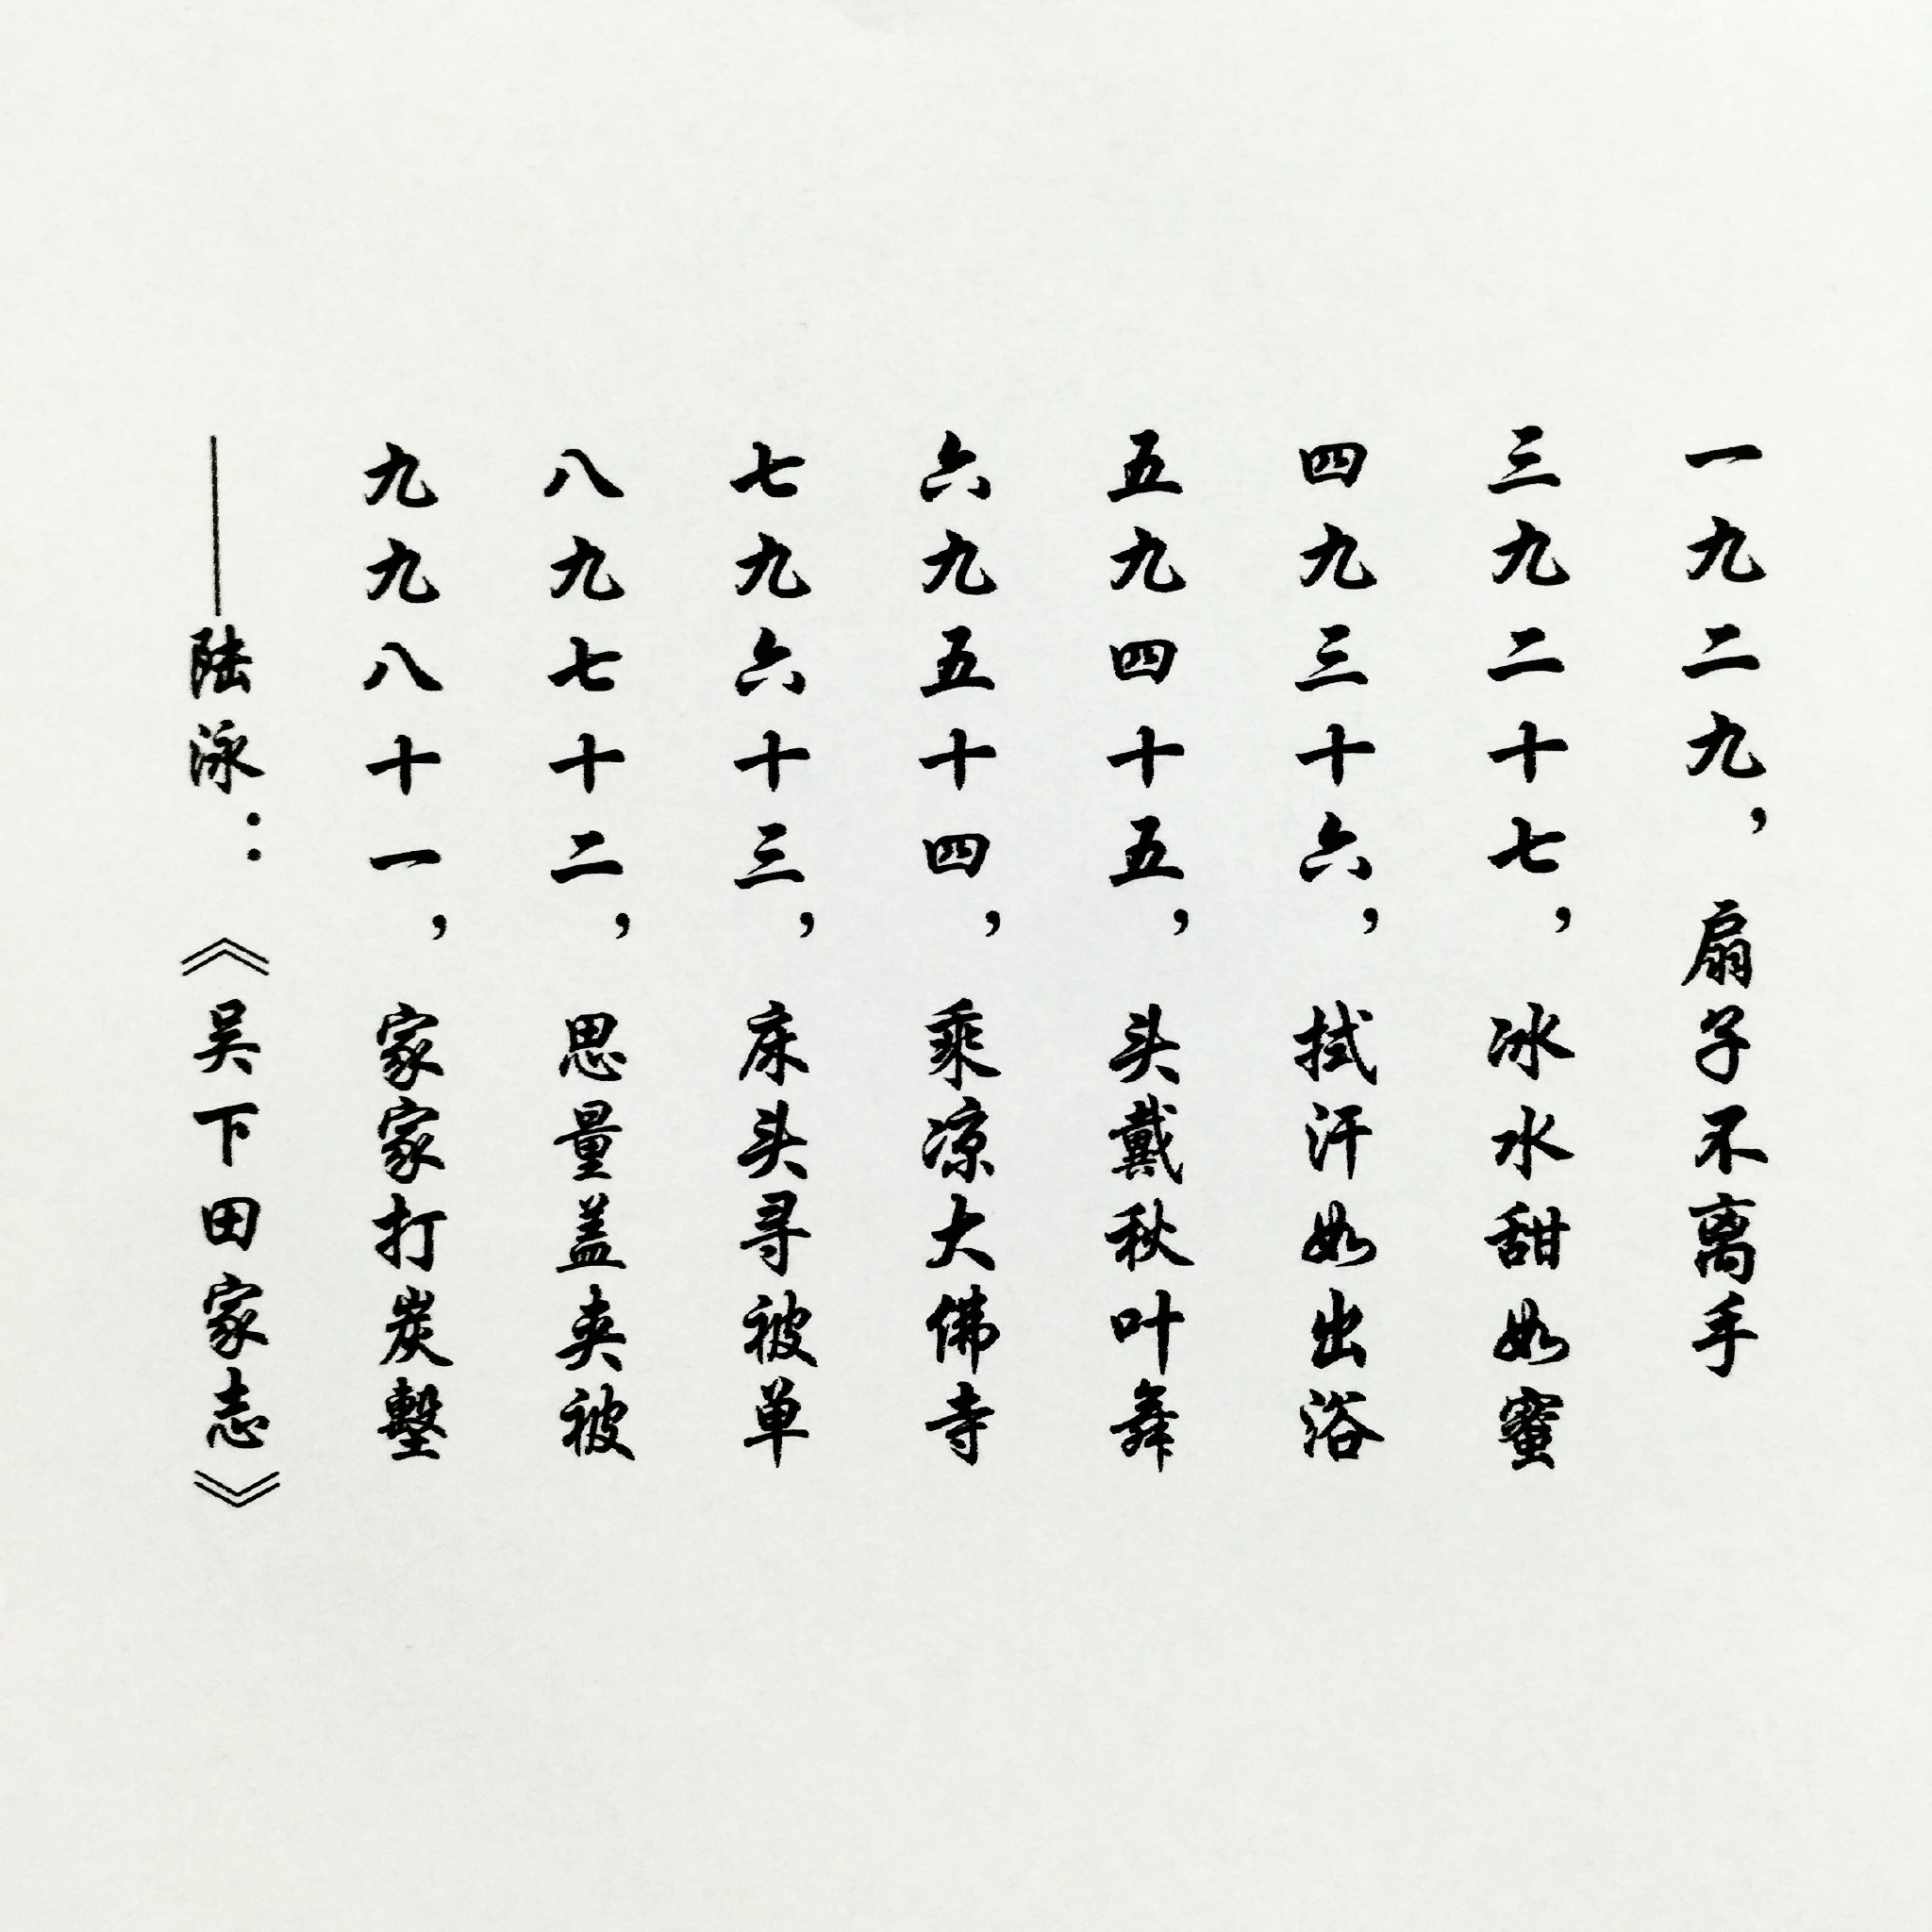 一九二九，扇子不离手
三九二十七，冰水甜如蜜
四九三十六，拭汗如出浴
五九四十五，头戴秋叶舞
六九五十四，乘凉大佛寺
七九六十三，床头寻被单
八九七十二，思量盖夹被
九九八十一，家家打炭墼
——陆泳：《吴下田家志》